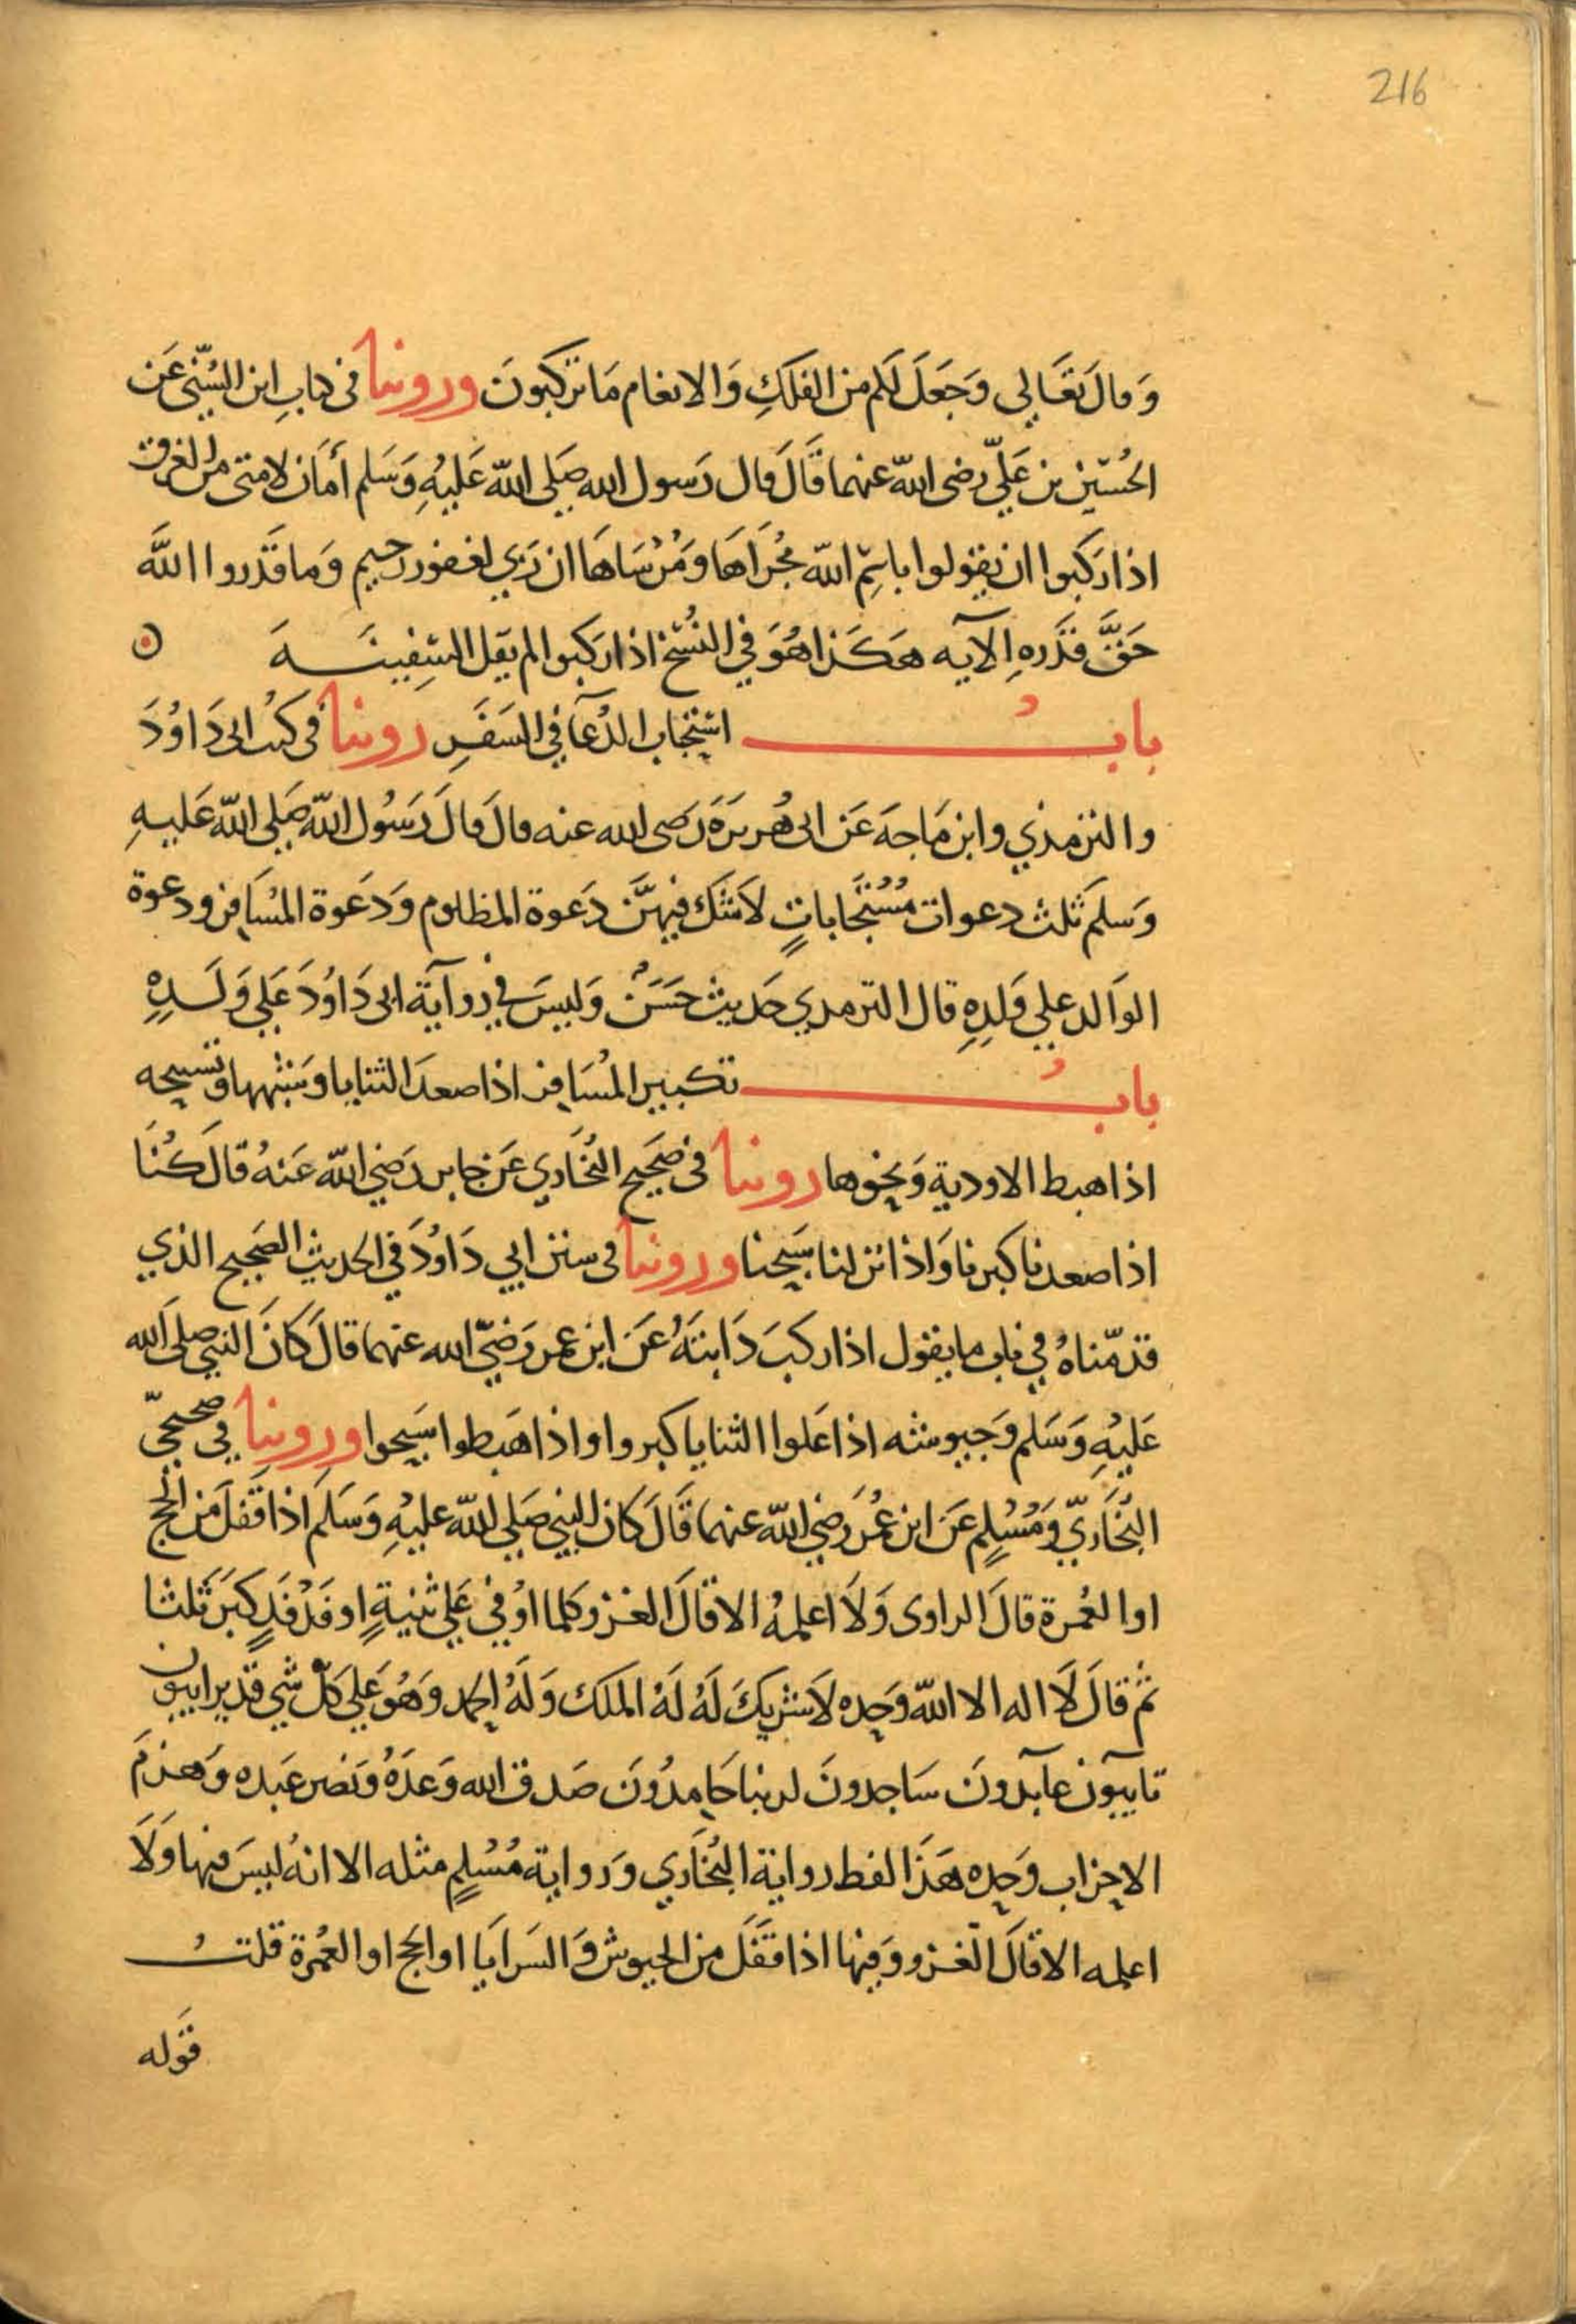 216
وَقالَ تعَالي وَجَعَلَ لكم من الفلكِ وَالانعام مَا تركبونَ وروينا في كتابِ ابن السُّنّي عَن
الحُسَين بن عَليّ رضى اللّه عنهما قَالَ قال رَسول الله صَلى اللّه عَليْهِ وَسَلم أمَان لامتى من الغرق
اذا رَكبوا ان يقولوا باسْمِ اللّه مجْرَاهَا وَمُرْسَاهَا ان رَبي لغفور رحيم وَما قَدَروا اللَّه
حَقَّ قدَرهِ الآيه هَكَذا هُوَ في النُسَخ اذا رَكبوا لم يقل السَفينَـــة
بابُ استِجَاب الدُعآ في السَفَرِ روينا في كتُب ابى دَاوُدَ
والترمذي وابن مَاجه عَن ابى هُريرَة رَضى الله عنه قال قالَ رَسُول اللّه صَلى اللّه عَليهِ
وَسلمَ ثلث دعوات مُسْتَجَاباتٍ لاَشَك فيهنَّ دَعوة المظلوم وَدَعوة المُسَافر ودعوة
الوَالد علي وَلدِهِ قال الترمدي حَديث حَسَنٌ وَليسَ في روآيَة ابى دَاوُدَ عَلي وَلَدِهِ
بابُ تكبير المُسَافر اذا صعدَ الثنايا وَشبهها وتسبيحه
اذا هبط الاودية وَنحوها روينا في صَحيح البُخَاري عَن جابر رَضي اللّه عَنهُ قالَ كُنَا
اذا صعدنا كبرنا وَاذا نزلنا سَبحنا وروينا في سنن ابي دَاوُدَ في الحديث الصَحيح الذي
قدّمناهُ في باب ما يقول اذا ركبَ دَابتَهُ عَن ابن عمر رَضيَ الله عنهما قالَ كَانَ النبي صلى الله
عَليْهِ وَسَلم وَجيوشه اذا عَلوا الثنايا كبروا واذا هَبطوا سَبحوا وروينا في صحيحَي
البُخَاريّ وَمُسْلمٍ عَن ابن عُمَر رَضي اللّه عنهما قَالَ كَان النبي صَلي اللّه عليْهِ وَسَلمَ اذا قَفَلَ مَن الحج
او العُمرة قالَ الراوى وَلاَ اعلمهُ الا قالَ الغزو كلما اوْفي عَلي ثنيةٍ او فَدْفَدٍ كبَرَ ثَلثا
ثُم قالَ لاَ اله الا اللّه وَحده لاَ شريكَ لَهُ لَهُ الملك وَلَهُ الحمد وَهُوَ عَلي كلّ شَي قدير ايبون
تايبون عآبدونَ سَاجدونَ لربنا حَامدُونَ صَدق الله وَعدَهُ وَنصر عَبده وَهزمَ
الاحزاب وَحده هَذا لفط رواية البُخَاري وَرواية مُسْلمٍ مثله الا انهُ ليسَ فيها وَلاَ
اعلمه الا قالَ الغزو وَفيها اذا قَفَلَ من الجيوش وَالسَرَايَا او الحج او العُمْرة قلتُ
قَوله